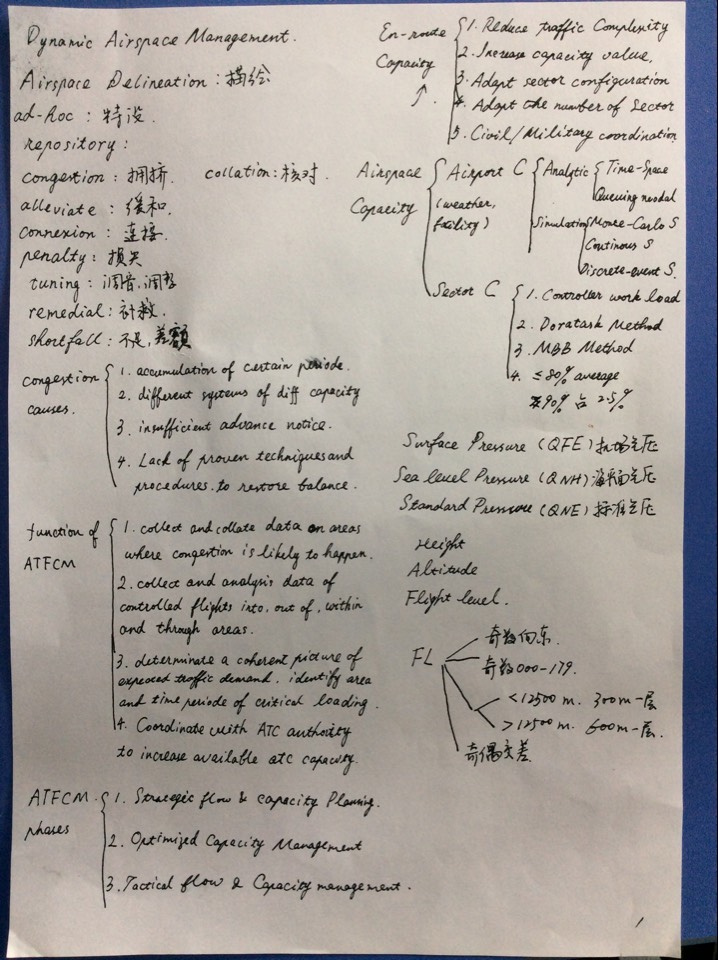 Dynamic Airspace Management.
Airspace Delineation : 描绘
ad-hoc : 特设.
repository :
congestion : 拥挤. collation : 核对.
alleviate : 缓和.
connexion : 连接.
penalty : 损失
tuning : 调音,调整
remedial : 补救.
shortfall : 不足, 差额
congestion causes.
1. accumulation of certain periode.
2. different systems of diff capacity
3. insufficient advance notice.
4. Lack of proven techniques and
procedures. to restore balance.
function of ATFCM
1. collect and collate data on areas
where congestion is likely to happen.
2. collect and analysis data of
controlled flights into, out of, within
and through areas.
3. determinate a coherent picture of
expected traffic demand. identify area
and time periode of critical loading.
4. Coordinate with ATC authority
to increase available atc capacity.
ATFCM phases
1. Strategic flow & capacity Planning.
2. Optimized Capacity Management
3. Tactical flow & Capacity management.
En-route Capacity ↑.
1. Reduce traffic Complexity
2. Increase capacity value.
3. Adapt sector configuration
4. Adapt the number of Sector
5. Civil/Military coordination
Airspace Capacity
Airport C
(weather,
facility)
Analytic
Time-Space
Queuing modal
Simulation
Monte-Carlo S
Continous S
Discrete-event S.
Sector C
1. Controller work load
2. Doratask Method
3. MBB Method
4. ≤ 80% average
90% 占 2.5%
Surface Pressure (QFE) 机场气压
Sea level Pressure (QNH) 海平面气压
Standard Pressure (QNE) 标准气压
Height
Altitude
Flight level.
FL
奇数向东.
奇数000-179.
<12500 m. 300m一层
>12500 m. 600m一层.
奇偶交差.